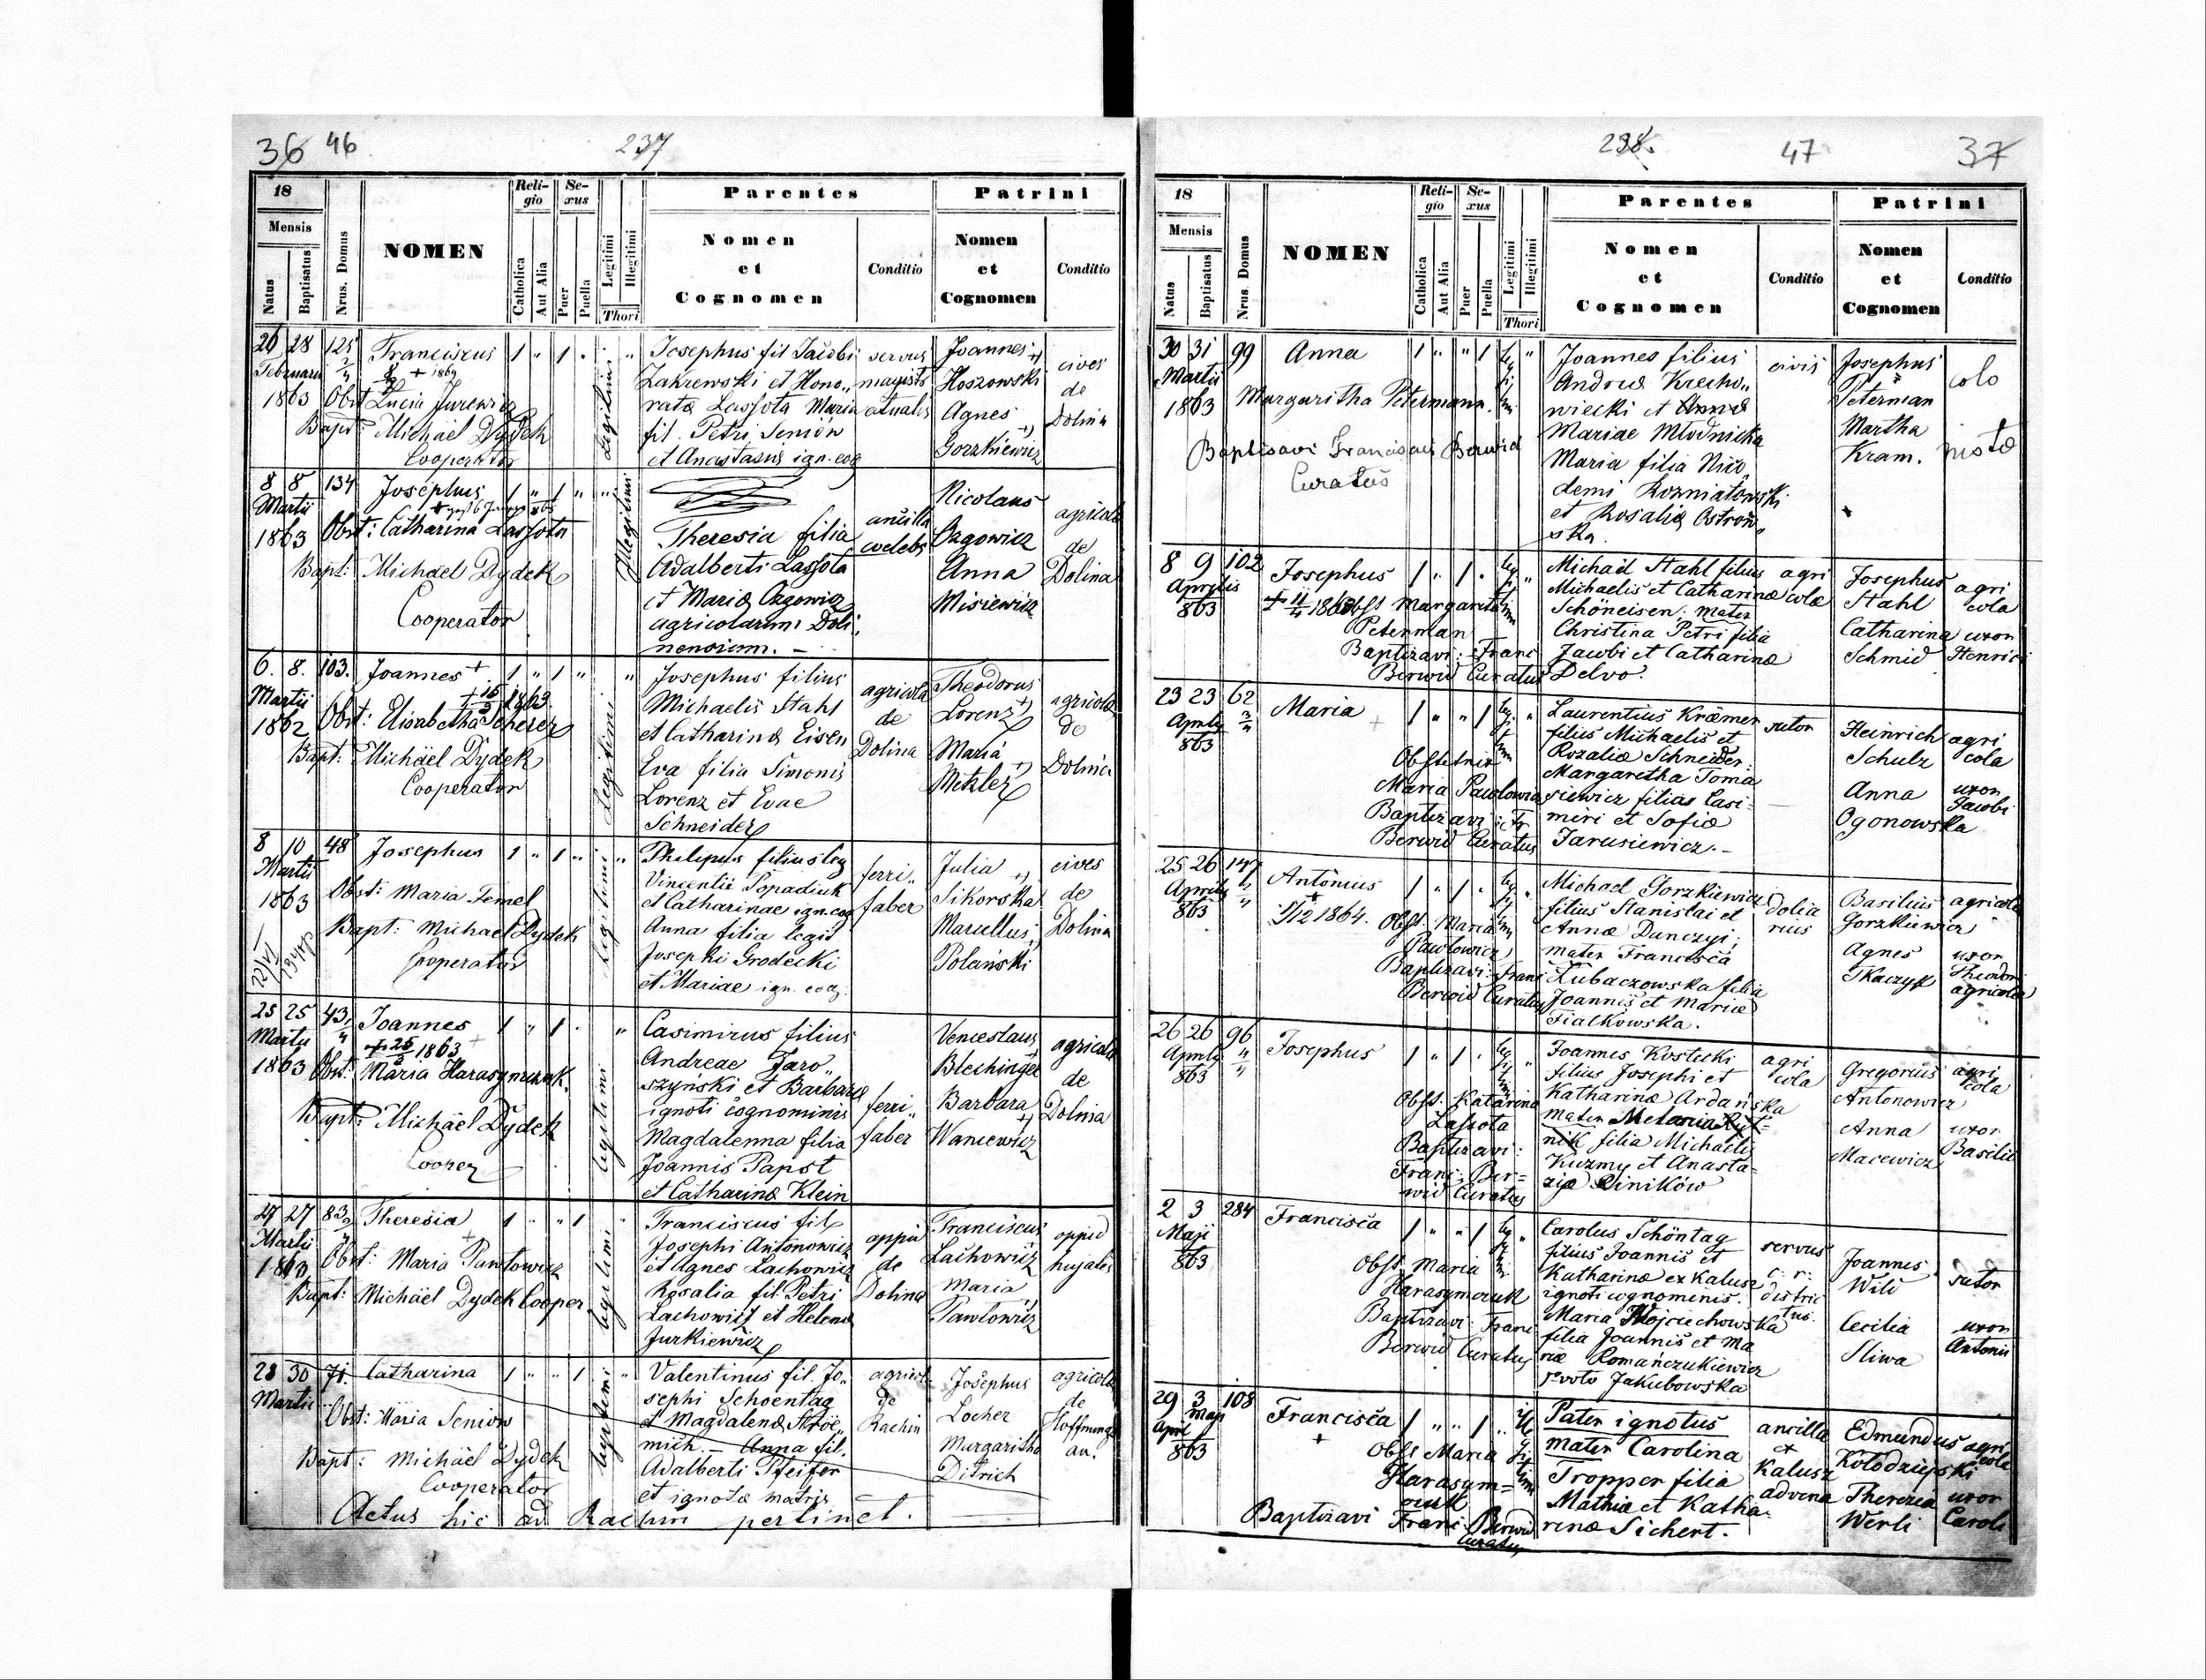 36 46 237
18
Mensis
Natus
Baptisatus
Nrus. Domus
NOMEN
Reli-
gio
Catholica
Aut Alia
Se-
xus
Puer
Puella
Legitimi
Illegitimi
Thori
Parentes
Nomen
et
Cognomen
Conditio
Patrini
Nomen
et
Cognomen
Conditio
26 28 125
Februarii
1863
Franciscus
Obst Lucia Jurewicz
Bapt: Michael Dydek
Cooperator
Legitimi
Josephus fil Jacobi
Zakrewski et Hono„
rata Lassota Maria
fil. Petri Senion
et Anastasius ign. cog
servus
magistr
atualis
Joannes
Hoszowski
Agnes
Gorzkiewicz
cives
de
Dolina
8 8 134
Martii
1863
Josephus
Obst: Catharina Lassota
Bapt: Michael Dydek
Cooperator
Illegitimi
Theresia filia
Adalberti Lassota
et Maria Ozgowicz
agricolarum Doli„
nensium. —
ancilla
coelebs
Nicolaus
Ozgowicz
Anna
Misiewicz
agricola
de
Dolina
6. 8. 103.
Martii
1862
Joannes +
+ 15/3 1863
Obst: Elisabetha Scherer
Bapt: Michäel Dydek
Cooperator
Legitimi
Josephus filius
Michaelis Stahl
et Catharina Eisen
Eva filia Simonis
Lorenz et Evae
Schneider
agricola
de
Dolina
Theodorus
Lorenz
Maria
Metzler
agricola
de
Dolina
8 10 48
Martii
1863
Josephus
Obst: Maria Temel
Bapt: Michael Dydek
Cooperator
Legitimi
Philipus filius leg
Vincentii Popadiuk
et Catharinae ign. cog
Anna filia legit
Josephi Grodecki
et Mariae ign. cog.
ferri„
faber
Julia
Sikorska
Marcellus
Polański
cives
de
Dolina
25 25 43
Martii
1863
Joannes
+ 25/3 1863
Obst: Maria Harasymczuk.
Bapt: Michäel Dydek
Cooper
legitimi
Casimirus filius
Andreae Jaro„
szyński et Barbarae
ignoti cognominis
Magdalenna filia
Joannis Papst
et Catharina Klein
ferri„
faber
Venceslaus
Blechinger
Barbara
Wancewicz
agricola
de
Dolina
27 27 83
Martii
1863
Theresia
Obst: Maria Pawlowicz
Bapt: Michäel Dydek Cooper
legitimi
Franciscus fil
Josephi Antonowicz
et Agnes Lachowicz
Rosalia fil. Petri
Lachowicz et Helena
Jurkiewicz
oppid
de
Dolina
Franciscus
Lachowicz
Maria
Pawlowicz
oppid
hujatis
28 30 71.
Martii
Catharina
Obst: Maria Senion
Bapt: Michäel Dydek
Cooperator
legitimi
Valentinus fil. Jo„
sephi Schoentag
et Magdalena Stroe„
mich. — Anna fil.
Adalberti Pfeifer
et ignota matris
agricola
de
Rachin
Josephus
Locher
Margaritha
Ditrich
agricola
de
Hoffnungs
au.
Actus hic ad Rachin pertinet.
238. 47 37
18
Mensis
Natus
Baptisatus
Nrus. Domus
NOMEN
Reli-
gio
Catholica
Aut Alia
Se-
xus
Puer
Puella
Legitimi
Illegitimi
Thori
Parentes
Nomen
et
Cognomen
Conditio
Patrini
Nomen
et
Cognomen
Conditio
30 31 99
Martii
1863
Anna
Margaritha Petermann.
Baptisavi Franciscus Berwid
Curatus
Joannes filius
Andrea Krecho„
wiecki et Anna
Mariae Młodnicka
Maria filia Nico
demi Rozniatowski
et Rosalia Ostrow„
ska.
civis
Josephus
Peterman
Martha
Kram.
colo
nistæ
8 9 102
Aprilis
863
Josephus
+ 11/4 1863 Obst Margaritha
Peterman
Baptizavi: Franc
Berwid Curatus
Michail Stahl filius
Michaelis et Catharinæ
Schöneisen; mater
Christina Petri filia
Jacobi et Catharinæ
Delvo.
agri
colæ
Josephus
Stahl
Catharina
Schmid
agri
cola
uxor
Henrici
23 23 62
Aprilis
863
Maria
Obstetrix
Maria Pawlowicz
Baptizavi: Fr.
Berwid Curatus
Laurentius Kræmer
filius Michaelis et
Rozaliæ Schneider:
Margaretha Toma
siewicz filias Casi-
miri et Sofiæ
Jarusiewicz. —
sutor
Heinrich
Schulz
Anna
Ogonowska
agri
cola
uxor
Jacobi
25 26 147
Aprilis
863
Antonius
+
1/12 1864.
Obst. Maria
Pawlowicz
Baptizavi: Franc
Berwid Curatus
Michael Gorzkiewicz
filius Stanislai et
Annæ Danczyj;
mater Francisca
Lubaczowska filia
Joannis et Mariæ
Fialkowska.
dolia
rius
Basilius
Gorzkiewicz
Agnes
Tkaczyk
agricola
uxor
Theodori
agricola
26 26 96
Aprilis
863
Josephus
Obst. Katarina
Lassota
Baptizavi:
Franc: Ber-
wid Curatus
Joannes Kostecki
filius Josephi et
Katharinæ Ardańska
mater
nik filia Michaelis
Kuzmy et Anasta-
ziæ Liników
agri
cola
Gregorius
Antonowicz
Anna
Macewicz
agri
cola
uxor
Basilii
2 3 284
Maji
863
Francisca
Obst Maria
Harasymczuk
Baptizavi: Franc
Berwid Curatus
Carolus Schöntag
filius Joannis et
Katharinæ ex Kalusz
ignoti cognominis.
Maria Wojciechowska
filia Joannis et Ma
riæ Romańczukiewicz
Jakubowska
servus
c. r.
distric
tus.
Joannes
Wild
Cecilia
Sliwa
sutor
uxor
Antonii
29 3 108
April Maji
863
Francisca
+
Obst Maria
Harasym=
czuk
Baptizavi Franc Berwid
Curatus
Pater ignotus
mater Carolina
Tropper filia
Mathiæ et Katha-
rinæ Sichert.
ancilla
et
Kalusz
advena
Edmundus
Kołodziejski
Therezia
Werli
agri
cola
uxor
Caroli